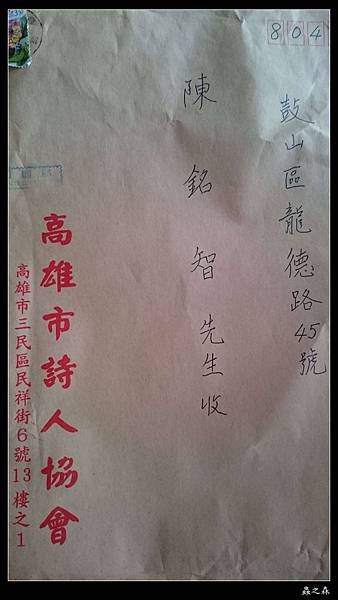 804
鼓山區龍德路45號
陳銘智先生收
高雄市詩人協會
高雄市三民區民祥街6號13樓之1
蟲之森